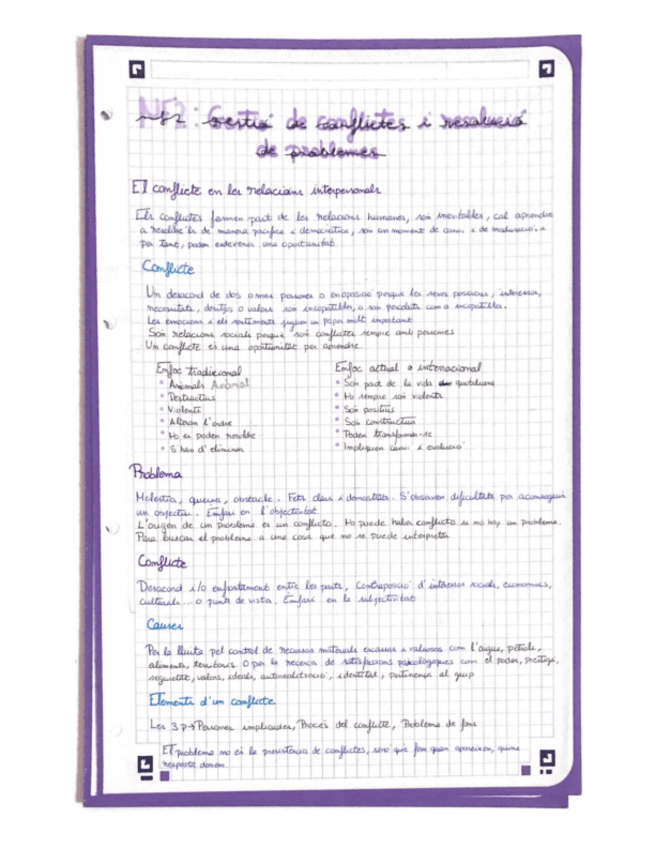 NF2: Gestió de conflictes i resolució
de problemes
El conflicte en les relacions interpersonals
Els conflictes formen part de les relacions humanes, són inevitables, cal aprendre
a resoldre'ls de manera pacífica i democràtica, són un moment de canvi i de maduració i
per tant, poden esdevenir una oportunitat.
Conflicte
Un desacord de dos o mes persones o en oposició perquè les seves posicions, interessos,
necessitats, desitjos o valors son incopatibles, o son percebuts com a incopatibles.
Les emocions i els sentiments juguen un paper molt important
Són relacions socials perquè són conflictes sempre amb persones
Un conflicte és una oportunitat per aprendre.
Enfoc tradicional
• Anormals
• Destructius
• Violents
• Alteren l'ordre
• No es poden resoldre
• S'han d'eliminar
Enfoc actual o internacional
• Són part de la vida quotidiana
• No sempre són violents
• Són positius
• Són constructius
• Poden transformar-se
• Impliquen canvi i evolució
Problema
Molestia, queixa, obstacle. Fets durs i demostrats. S'observen dificultats per aconseguir
un objectiu. Enfasi en l'objectivitat.
L'origen de un problema es un conflicto. No puede haber conflicto si no hay un problema.
Para buscar el problema a una cosa que no se puede interpretar
Conflicte
Desacord i/o enfrontament entre les parts, Contraposició d'interessos socials, economics,
culturals... o punts de vista. Emfasi en la subjectivitat
Causes
Per la lluita pel control de recursos materials escassos i valuosos com l'aigua, petroli,
aliments, territoris. O per la recerca de satisfaccions psicològiques com el poder, prestigi,
seguretat, valors, ideals, autorealització, identitat, pertinença al grup
Elements d'un conflicte
Les 3 p → Persones implicades, Procés del conflicte, Problema de fons
El problema no és la presistencia de conflictes, sinó que fem quan apareixen, quina
resposta donem.